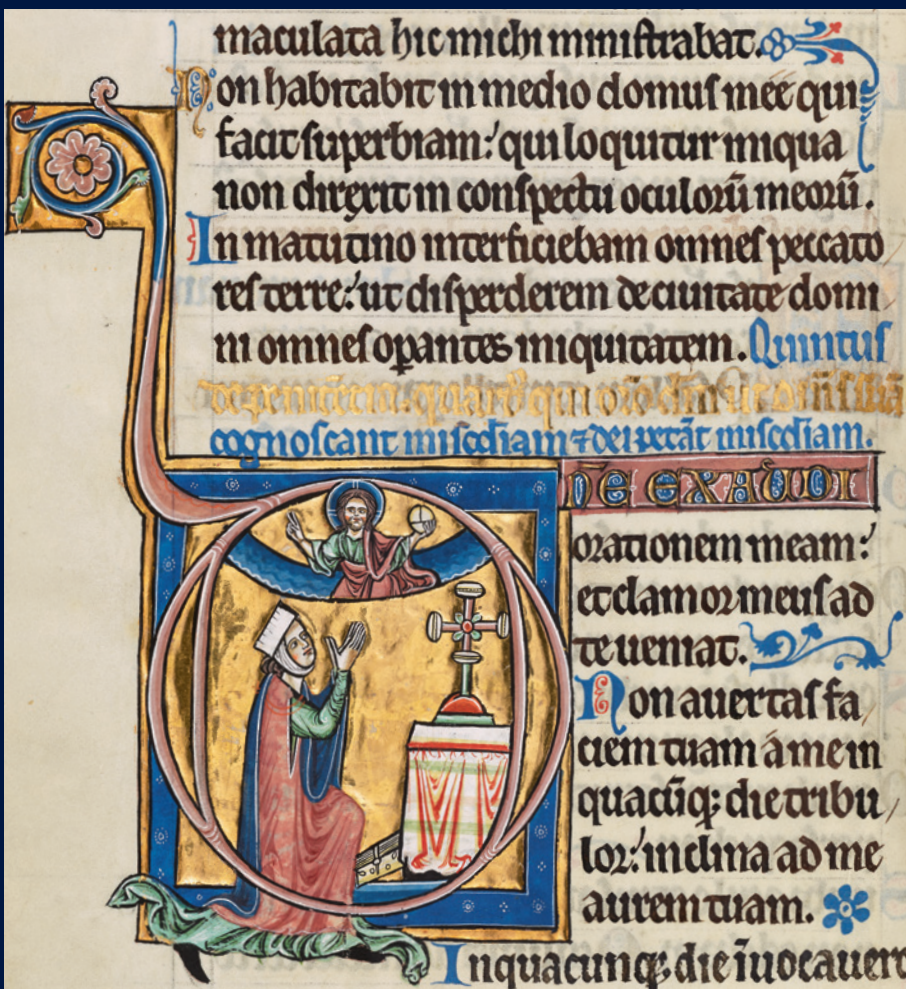 maculata hic michi miniſtrabat.
Non habitabit in medio domuſ meę qui
facit ſuperbiam: qui loquitur iniqua
non direxit in conſpectu oculorū meorū.
In matutino interficiebam omneſ peccato
reſ terre: ut diſperderem de ciuitate domi
ni omneſ oꝑanteſ iniquitatem. Quintuſ
de penitētia. qui ut
cognoſcant miſcdiam ⁊ dei petāt miſcdiam.
DN̄E EXAUDI
orationem meam:
et clamor meuſ ad
te ueniat.
Non auertaſ fa
ciem tuam a me in
quacūq; die tribu
lor: inclina ad me
aurem tuam.
In quacunq; die īuocauero